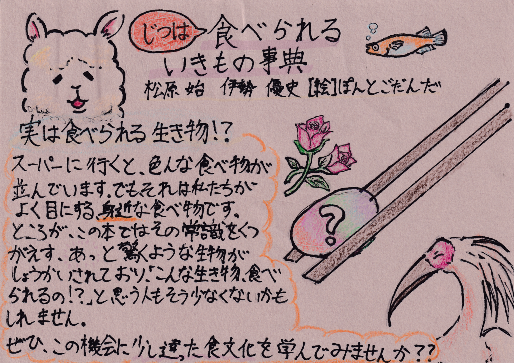 じつは食べられる
いきもの事典
松原 始 伊勢 優史 [絵]ぽんとごだんだ
実は食べられる生き物!?
スーパーに行くと、色んな食べ物が
並んでいます。でもそれは私たちが
よく目にする、身近な食べ物です。
ところが、この本ではその常識をくつ
がえす、あっと驚くような生物が
しょうかいされており、「こんな生き物、食べ
られるの!?」と思う人もそう少なくないかも
しれません。
ぜひ、この機会に少し違った食文化を学んでみませんか??
?